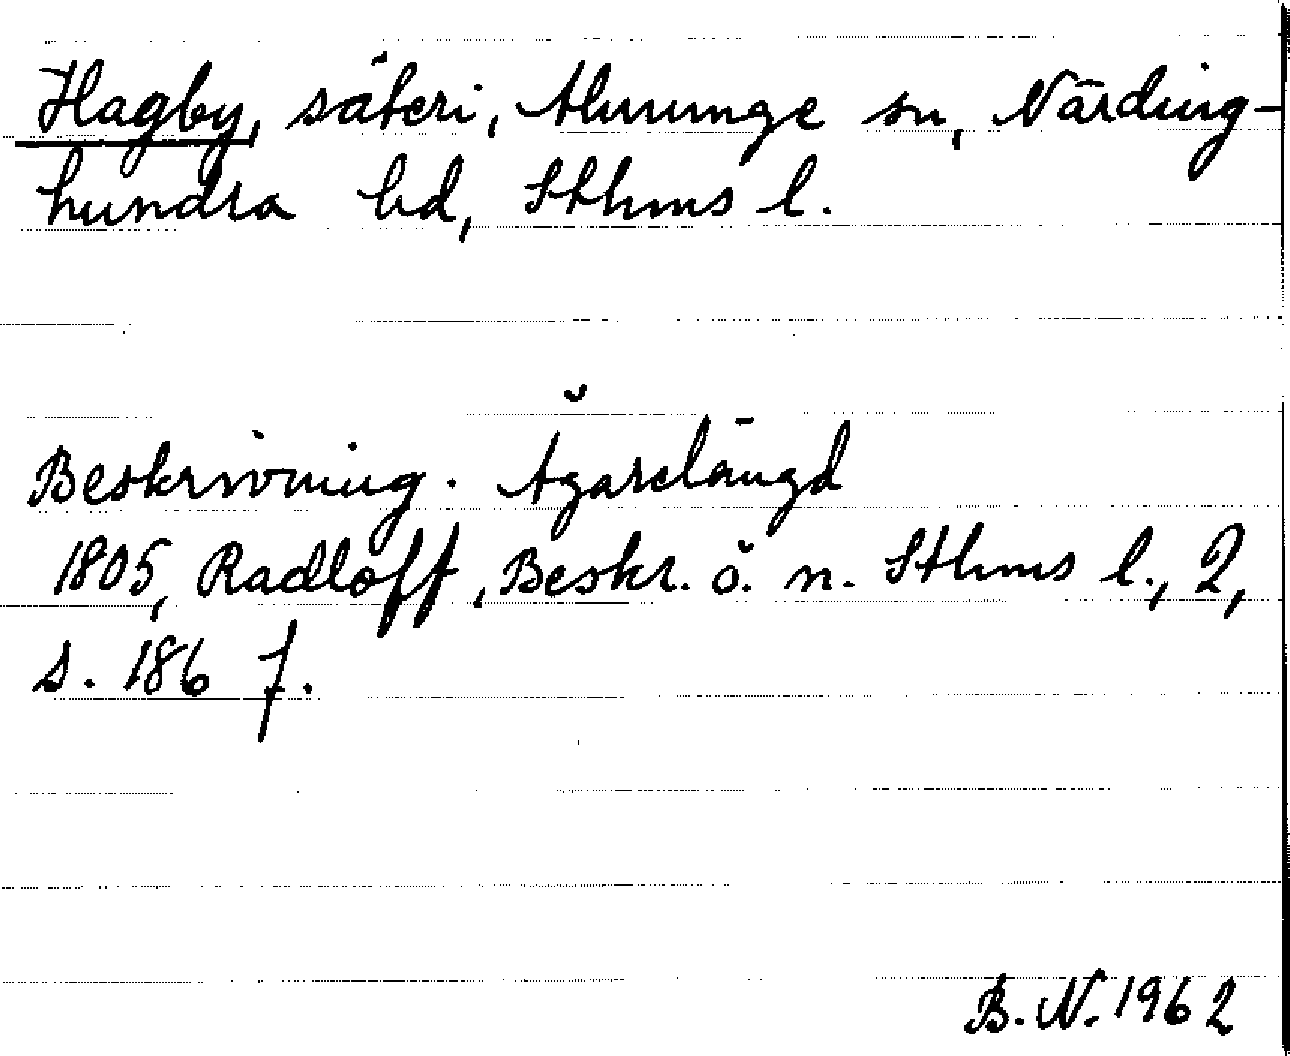 Hagby, säteri, Almunge sn, Närding-
hundra hd, Sthms l.
Beskrivning. Ägarelängd
1805, Radloff, Beskr. ö. n. Sthms l., 2,
s. 186 f.
B. N. 1962